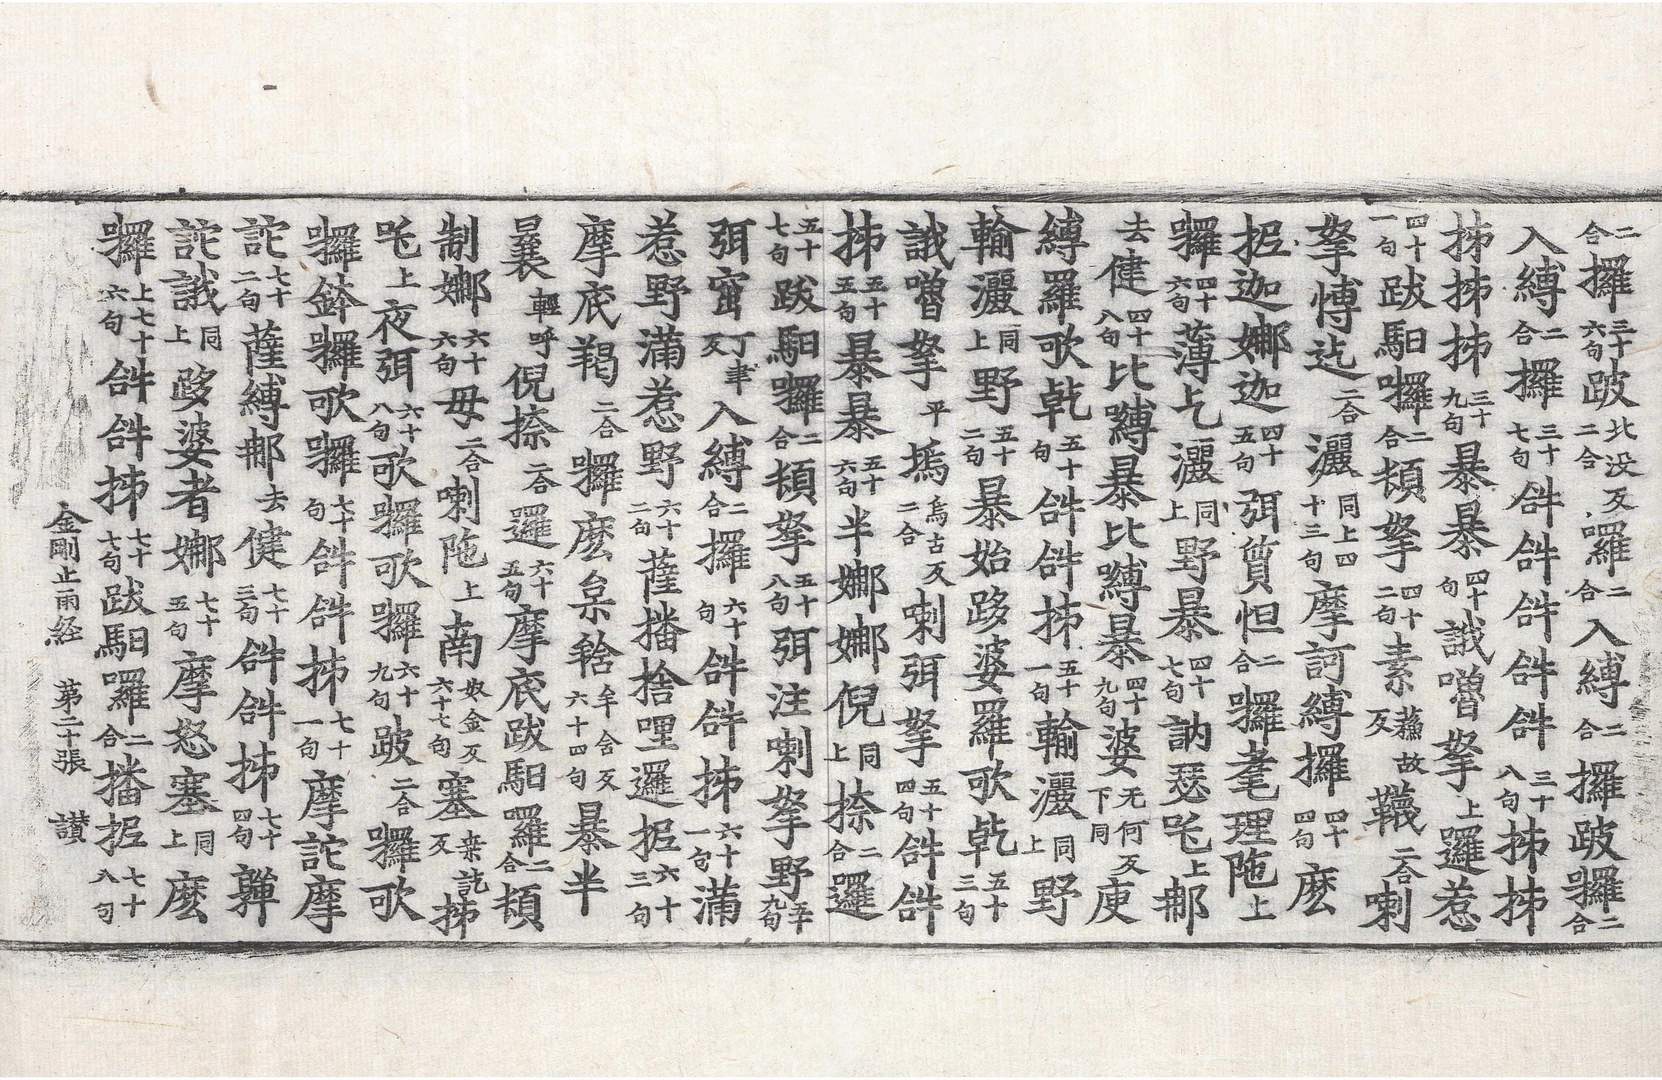 二合攞三十六句跛北没反囉二合入縛二合攞跛囉二合
入縛二合攞三十七句𤙖𤙖𤙖𤙖三十八句抪抪
抪抪抪三十九句暴暴四十句誐噌拏上邏惹
四十一句跋馹囉二合頓拏四十二句素蘇故反韈二合喇
拏愽迄二合灑同上四十三句摩訶縛攞四十四句麽
抳迦娜迦四十五句弭質怛二合囉耄理陁上
囉四十六句薄乞灑同上野暴四十七句訥瑟吒上郝
去健四十八句比囀暴比囀暴四十九句婆无何反下同庾
縛羅歌乾五十句𤙖𤙖抪五十一句輸灑同上野
輸灑同上野五十二句暴始跢婆羅歌乾五十三句
誐噌拏平塢烏古反二合喇弭拏五十四句𤙖𤙖
抪五十五句暴暴五十六句半娜娜倪同上捺二合邏
五十七句跋馹囉二合頓拏五十八句弭注喇拏野五十九句
弭窋丁聿反入縛二合攞六十句𤙖𤙖抪六十一句滿
惹野滿惹野六十二句薩播捨哩邏抳六十三句
摩底羯二合囉麽枲輅牟含反六十四句暴半
曩輕呼倪捺二合邏六十五句摩底跋馹囉二合頓
制娜六十六句毋二合喇陁上南奴金反六十七句塞桒訖反抪
吒上夜弭六十八句歌囉歌囉六十九句跛二合囉歌
囉鉢囉歌囉七十句𤙖𤙖抪七十一句摩詫摩
詫七十二句薩縛郝去健七十三句𤙖𤙖抪七十四句鼾
詫誐同上跢婆者娜七十五句摩怒塞同上麽
囉上七十六句𤙖𤙖抪七十七句跋馹囉二合播抳七十八句
金剛止雨経　第二十張　讃